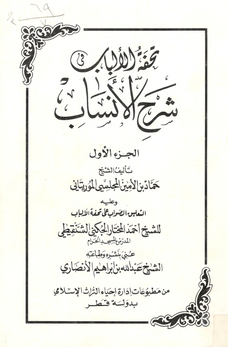 تحفة الألباب في
شرح الأنساب
الجزء الأول
تأليف الشيخ
حماد بن الأمين المجلسي الموريتاني
وعليه
التعليق الصواب على تحفة الألباب
للشيخ احمد المختار الجكني الشنقيطي
المدرس بالمسجد الحرام
عني بنشره وطباعته
الشيخ عبدالله بن ابراهيم الأنصاري
من مطبوعات إدارة إحياء التراث الإسلامي
بدولة قطر